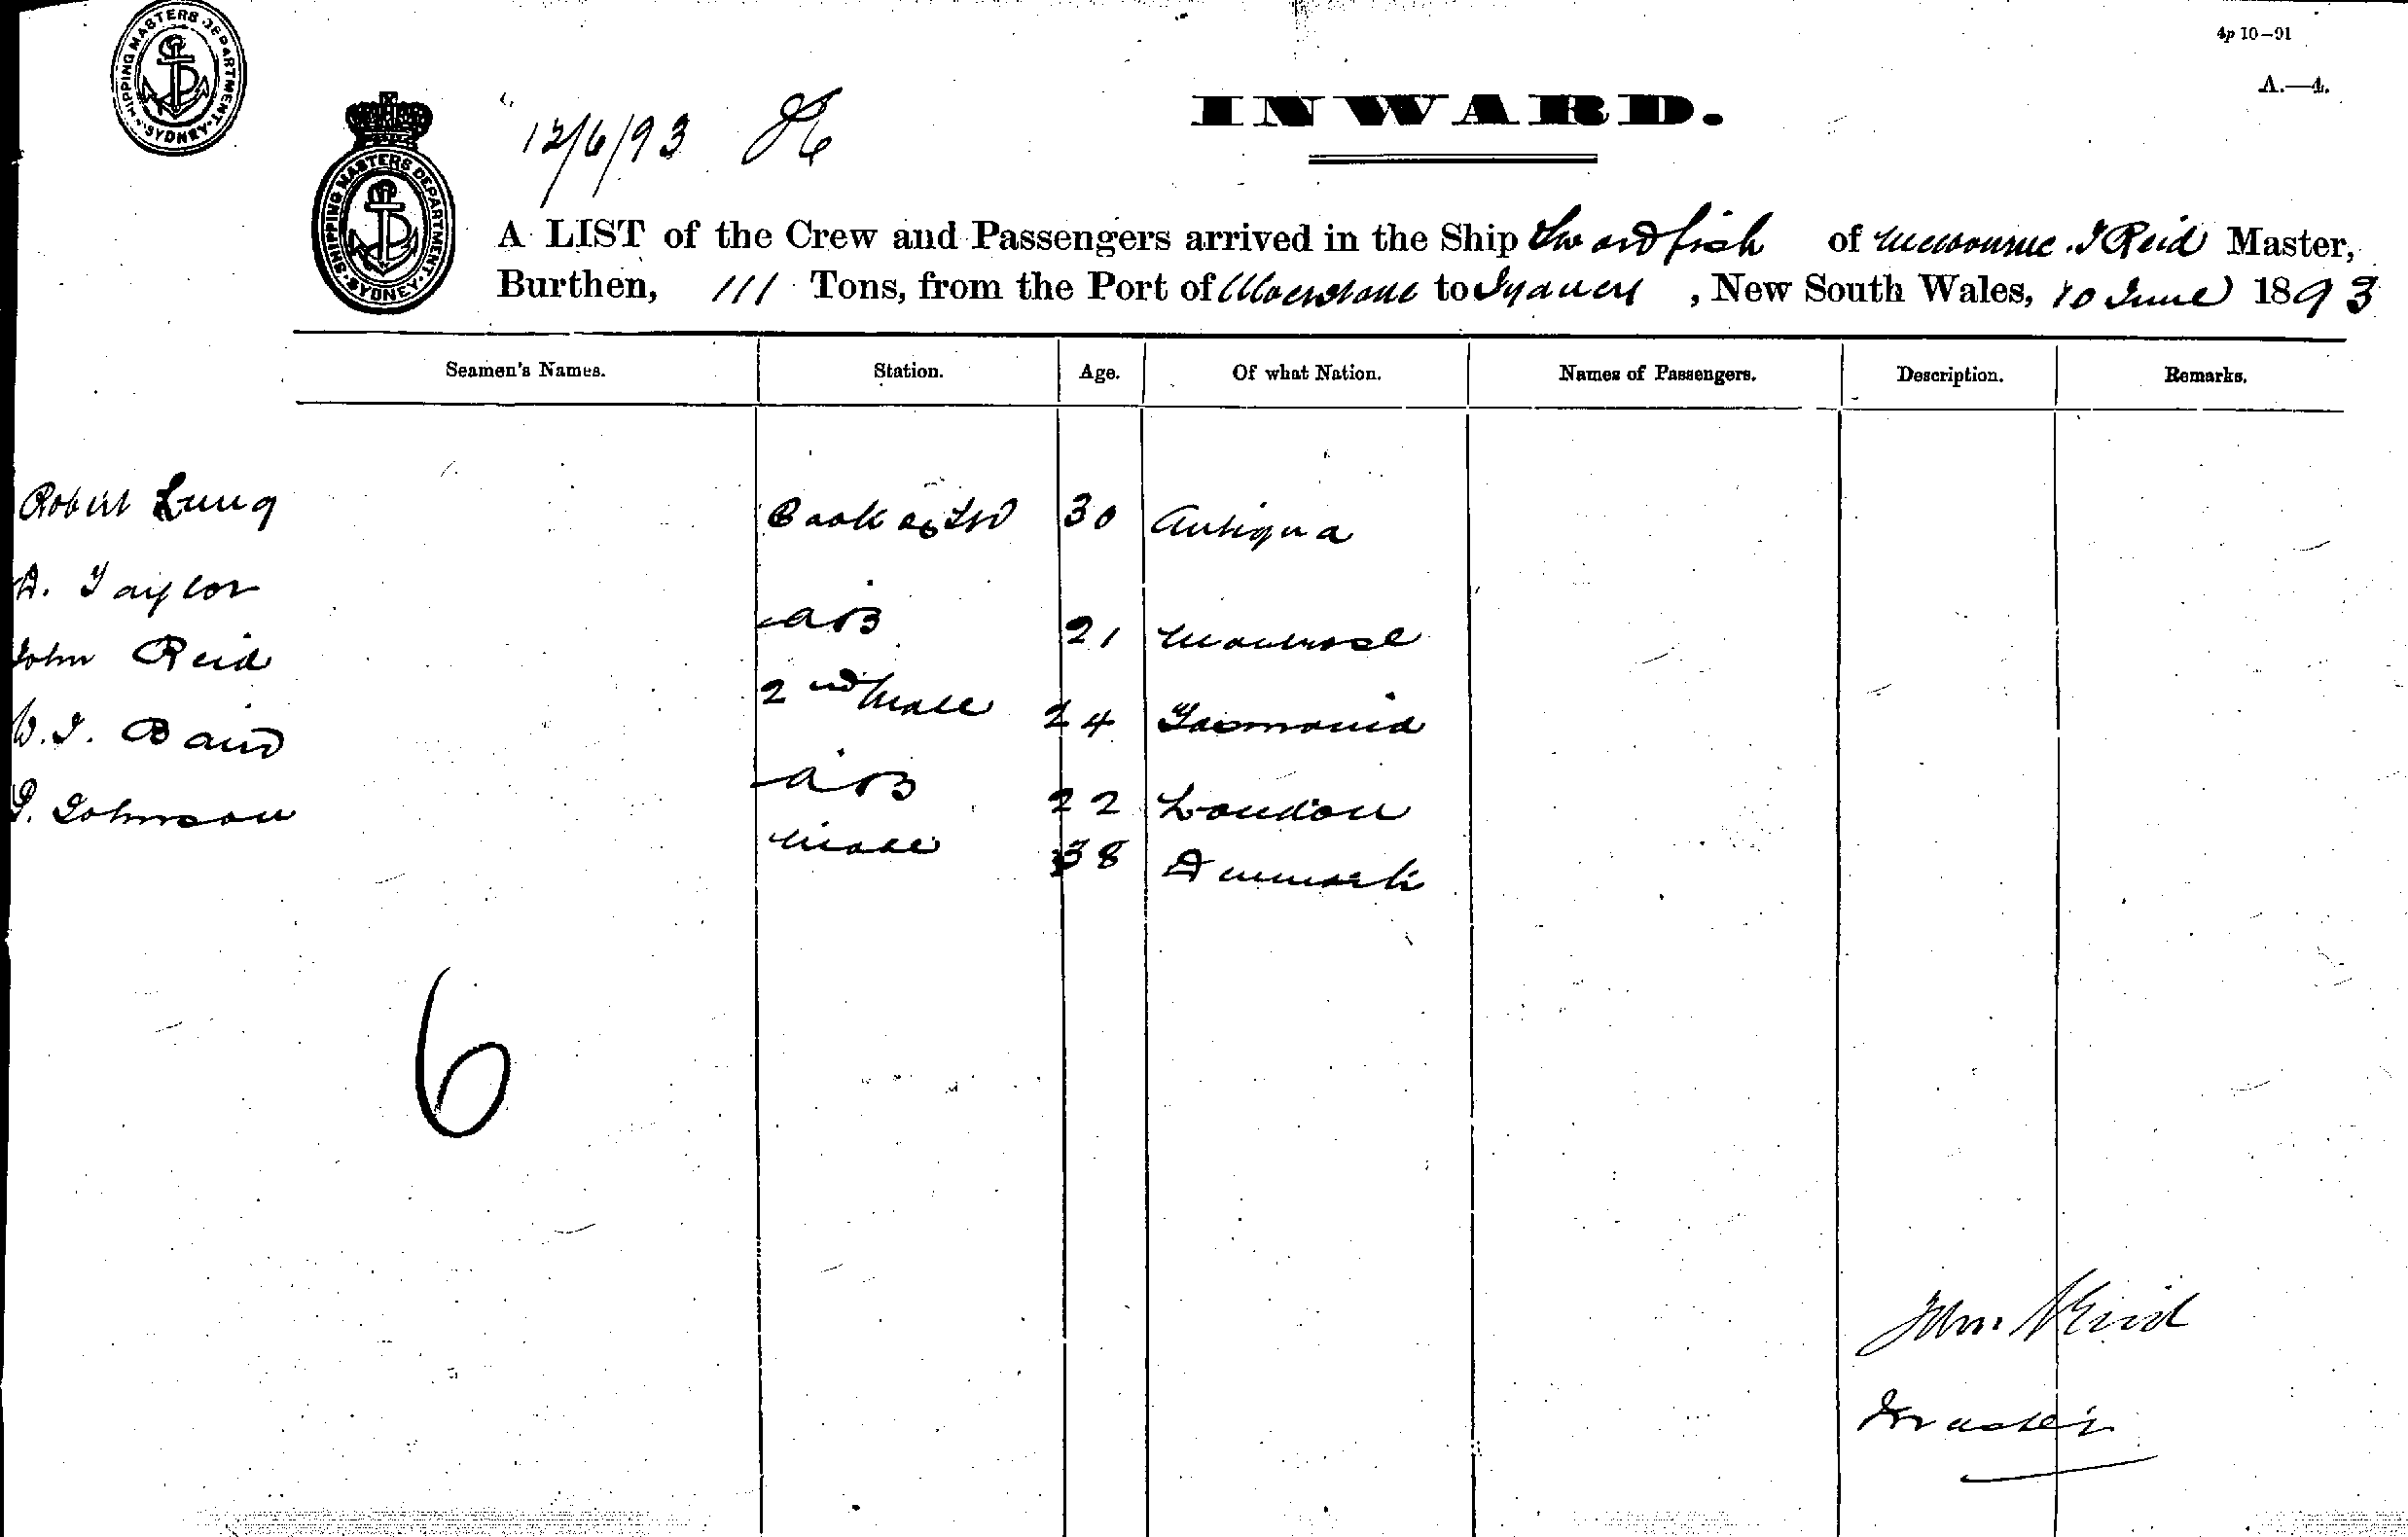 4p 10-91
A.—4.
SHIPPING MASTERS DEPARTMENT SYDNEY
SHIPPING MASTERS DEPARTMENT SYDNEY
12/6/93
INWARD.
A LIST of the Crew and Passengers arrived in the Ship Swordfish of Melbourne J Reid Master,
Burthen, 111 Tons, from the Port of Ulverstone to Sydney, New South Wales, 10 June 1893
Seamen's Names. Station. Age. Of what Nation. Names of Passengers. Description. Remarks.
Robert Lung Cook & 30 Antigua
A. Taylor AB 21 Montrose
John Reid 2nd Mate 24 Tasmania
W. J. Baird AB 22 London
Johnson Mate 38 Denmark
6
John Reid
Master